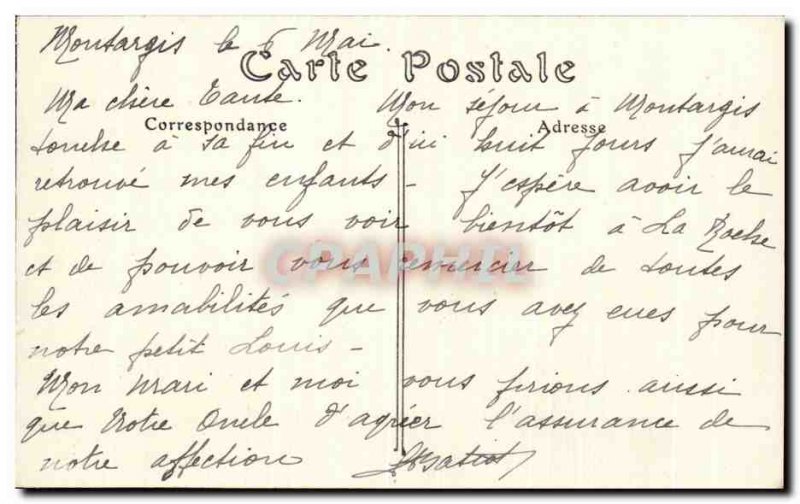 Montargis le 6 Mai.
Carte Postale
Ma chère Tante. Mon séjour à Montargis
Correspondance Adresse
touche à sa fin et d'ici huit jours j'aurai
retrouvé mes enfants - J'espère avoir le
plaisir de vous voir bientôt à La Roche
et de pouvoir vous remercier de toutes
CPAPHIL
les amabilités que vous avez eues pour
notre petit Louis -
Mon Mari et moi vous prions aussi
que Notre Oncle d'agréer l'assurance de
notre affection